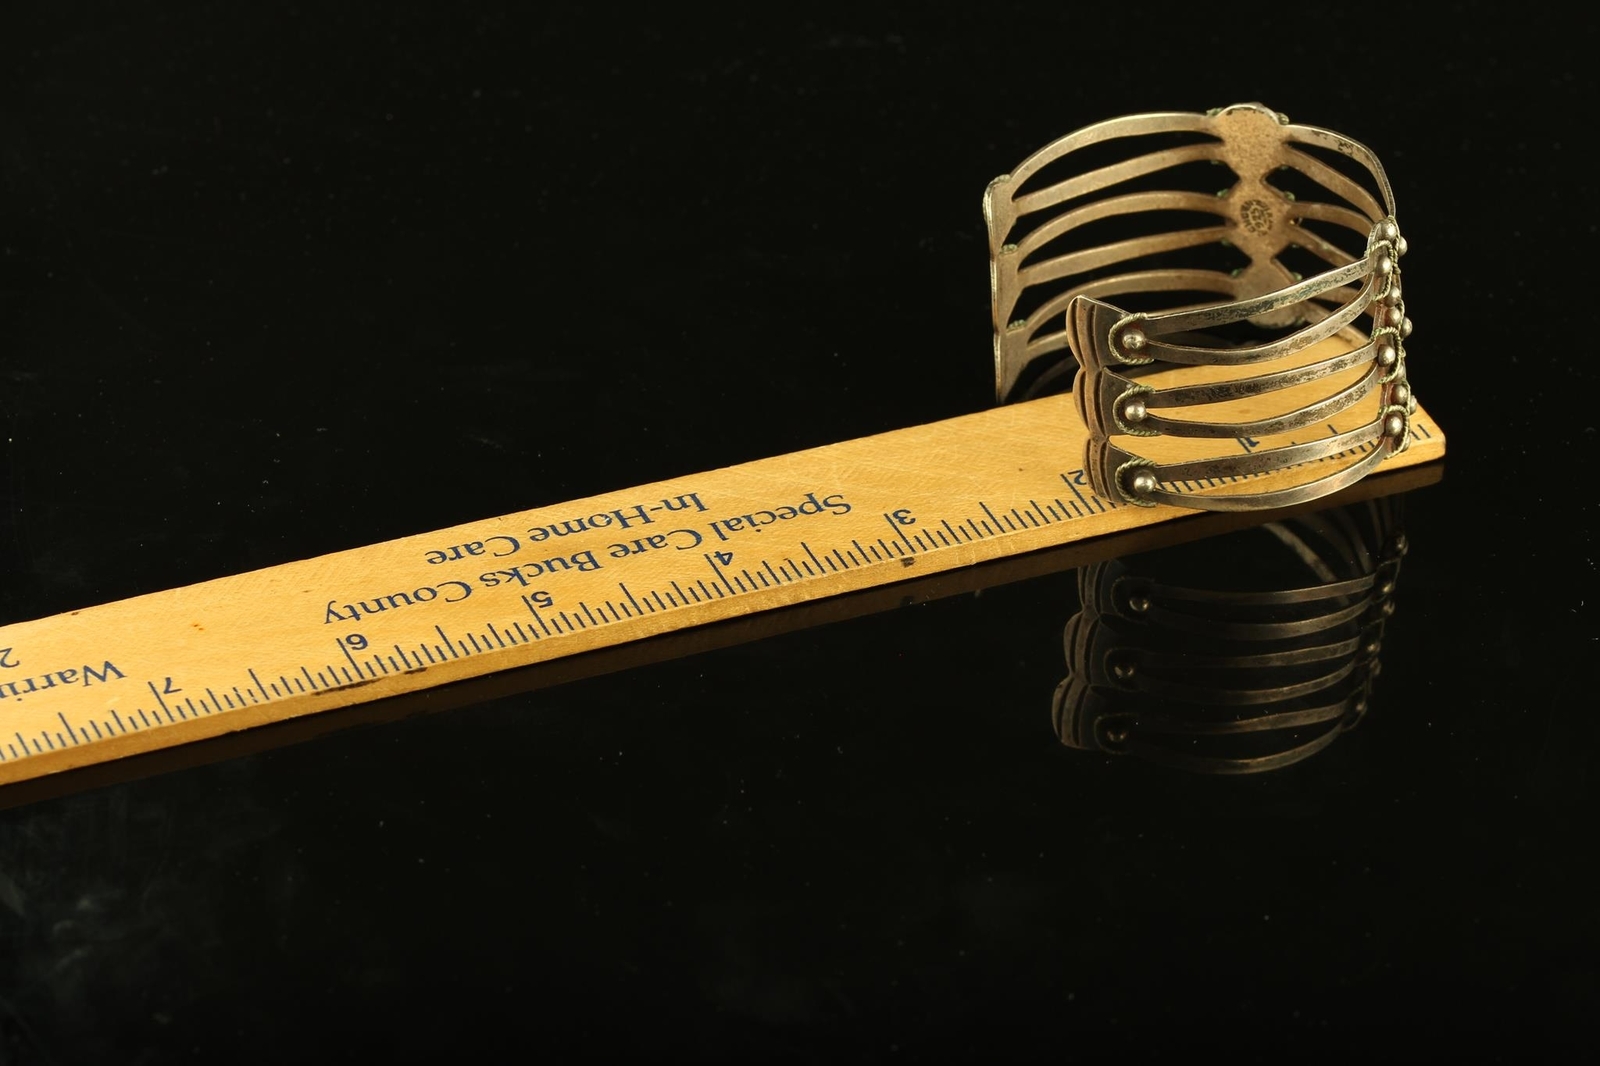 Special Care Bucks County
In-Home Care
Warri
2
1 2 3 4 5 6 7